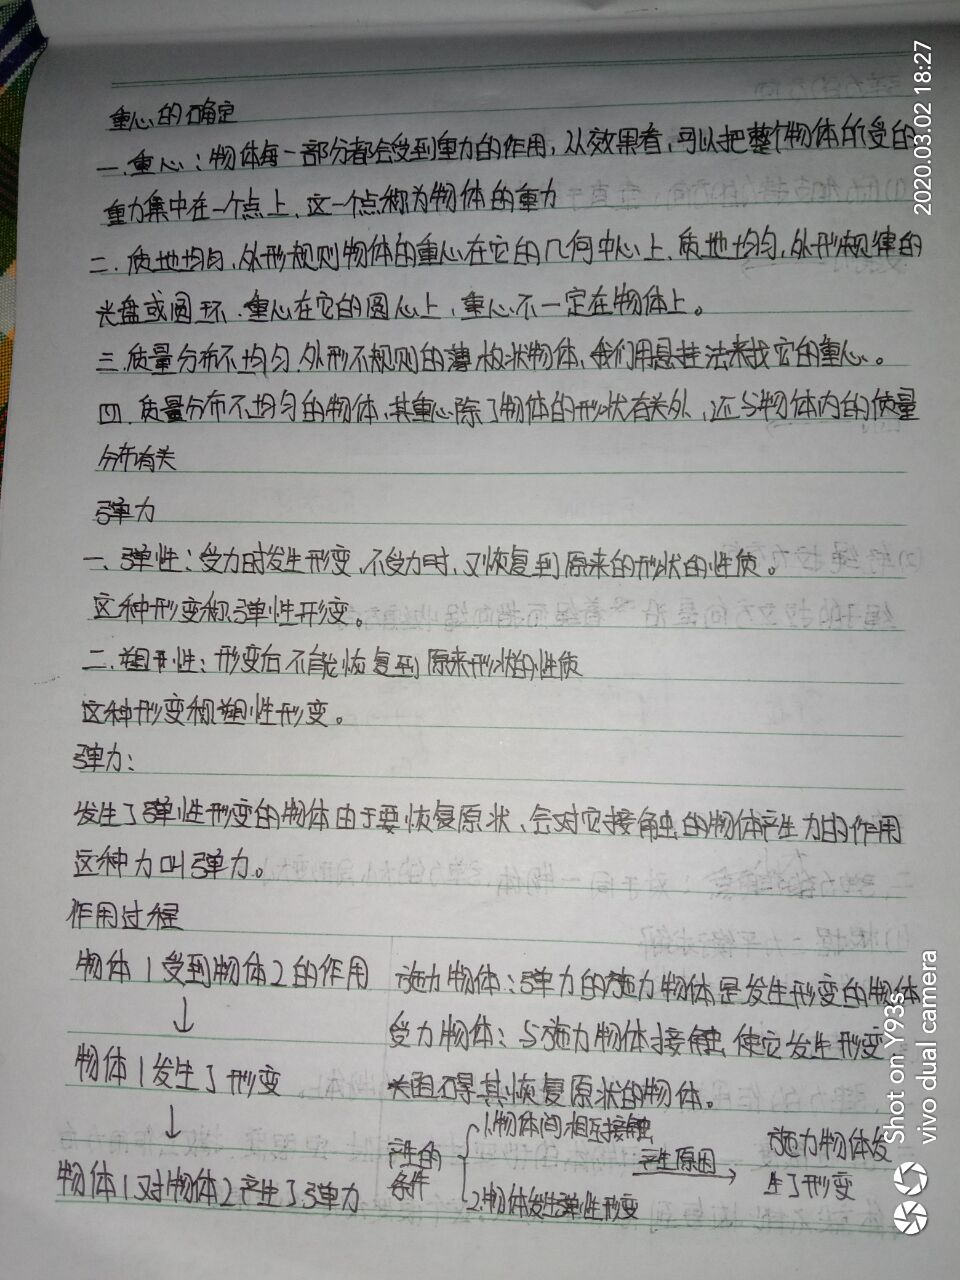 重心的确定
一.重心：物体每一部分都会受到重力的作用，从效果看，可以把整个物体所受的
重力集中在一个点上，这一个点称为物体的重力
二.质地均匀、外形规则物体的重心在它的几何中心上，质地均匀，外形规律的
光盘或圆环，重心在它的圆心上，重心不一定在物体上。
三.质量分布不均匀 外形不规则的薄板状物体，我们用悬挂法来找它的重心。
四.质量分布不均匀的物体，其重心除了物体的形状有关外，还与物体内的质量
分布有关
弹力
一、弹性：受力时发生形变，不受力时，又恢复到原来的形状的性质。
这种形变称弹性形变。
二.塑性：形变后不能恢复到原来形状的性质
这种形变称塑性形变。
弹力：
发生了弹性形变的物体由于要恢复原状、会对它接触的物体产生力的作用
这种力叫弹力。
作用过程
物体1受到物体2的作用
↓
物体1发生了形变
↓
物体1对物体2产生了弹力
施力物体：弹力的施力物体是发生形变的物体
受力物体：与施力物体接触 使它发生形变
阻碍其恢复原状的物体。
产生的条件
1.物体间相互接触
2.物体发生弹性形变
产生原因→
施力物体发
生了形变
2020.03.02 18:27
Shot on Y93s
vivo dual camera